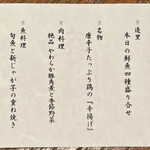 造里
本日の鮮魚四種盛り合せ
名物
唐辛子たっぷり鶏の『辛揚げ』
肉料理
絶品 やわらか豚角煮と季節野菜
魚料理
旬魚と新じゃが子の重ね焼き